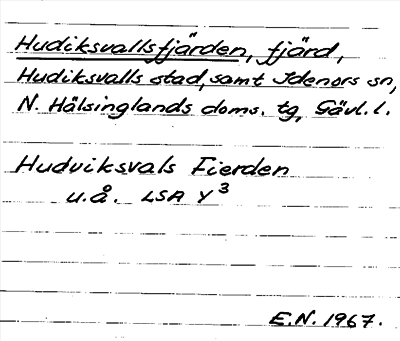 Hudiksvallsfjärden, fjärd,
Hudiksvalls stad, samt Idenors sn,
N. Hälsinglands doms. tg, Gävl. l.
Hudviksvals Fierden
u.å. LSA Y 3
E.N. 1967.